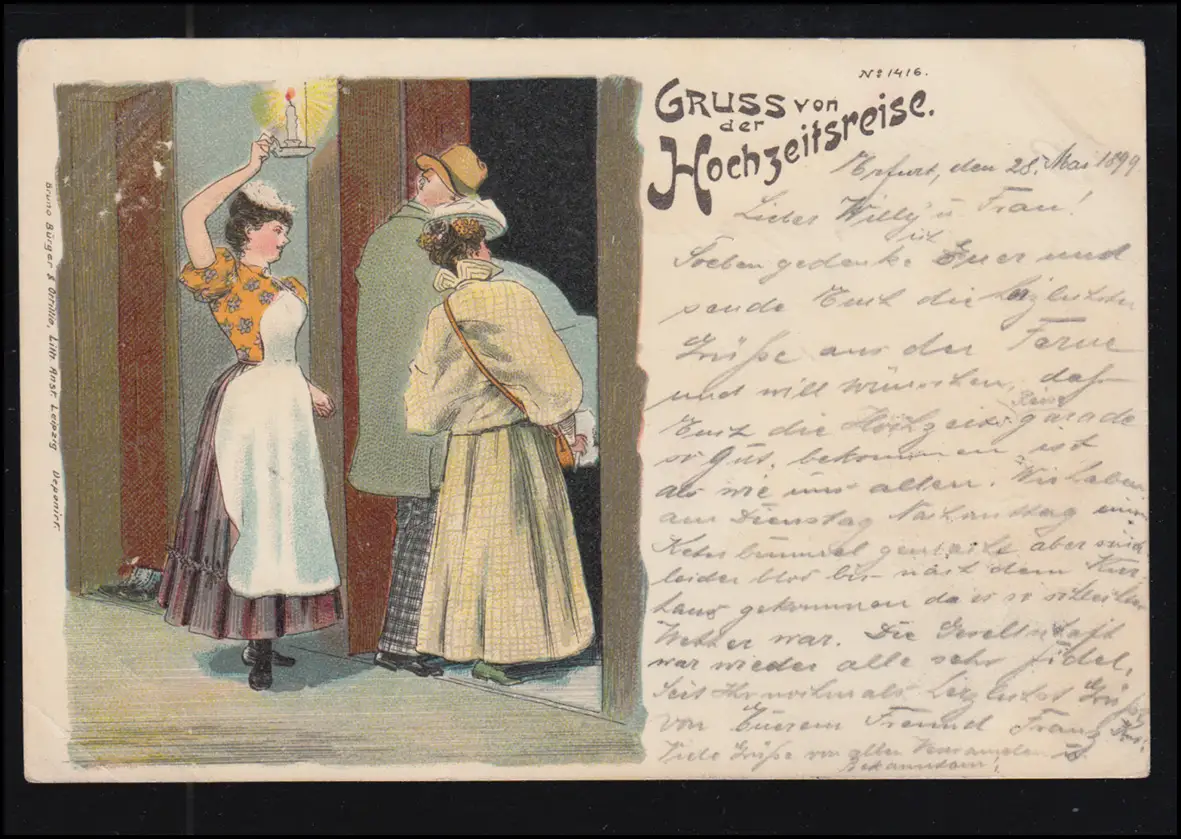 No 1416.
GRUSS von
der
Hochzeitsreise.
Erfurt, den 28. Mai 1899.
Liebes Willy u Frau!
ich
Soeben gedenke Euer und
sende Euch die herzlichsten
Grüße aus der Ferne
und will wünschen, daß
Reise
Euch die Hochzeits gerade
so gut bekommen ist
als wie uns allen. Wir haben
am Dienstag Nachmittag
gemacht aber sind
leider blos bis nach dem Kur
haus gekommen da es so schlechtes
Wetter war. Die Gesellschaft
war wieder alle sehr fidel,
Seit Ihr nochmals herzlichst Grüße
von Euerem Freund Franz
Viele Grüße von allen Verwandten u
Bekannten!
Bruno Bürger & Ottillie, Lith. Anst. Leipzig Deponirt.